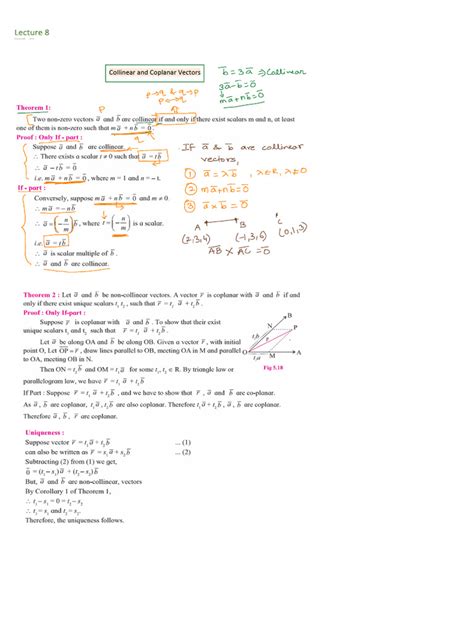 Lecture 8
Collinear and Coplanar Vectors
b̅ = 3a̅ ⇒ Collinear
3a̅ - b̅ = 0̅
↓
ma̅ + nb̅ = 0̅
p → q & q → p
p ↔ q
Theorem 1:
p
q
Two non-zero vectors a̅ and b̅ are collinear if and only if there exist scalars m and n, at least
one of them is non-zero such that m a̅ + n b̅ = 0̅.
Proof : Only If - part :
Suppose a̅ and b̅ are collinear.
∴ There exists a scalar t ≠ 0 such that a̅ = tb̅
∴ a̅ - tb̅ = 0̅
i.e. m a̅ + n b̅ = 0̅, where m = 1 and n = - t.
If - part :
Conversely, suppose m a̅ + n b̅ = 0̅ and m ≠ 0.
∴ m a̅ = -n b̅
∴ a̅ = (-n/m) b̅, where t = (-n/m) is a scalar.
i.e. a̅ = t b̅
∴ a̅ is scalar multiple of b̅.
∴ a̅ and b̅ are collinear.
If a̅ & b̅ are collinear
vectors,
① a̅ = λb̅, λ∈R, λ≠0
② ma̅ + nb̅ = 0̅
③ a̅ × b̅ = 0̅
A B C
(2,3,4) (-1,3,6) (0,1,3)
AB × AC = 0̅
Theorem 2 : Let a̅ and b̅ be non-collinear vectors. A vector r̅ is coplanar with a̅ and b̅ if and
only if there exist unique scalars t₁, t₂, such that r̅ = t₁ a̅ + t₂ b̅.
Proof : Only If-part :
Suppose r̅ is coplanar with a̅ and b̅. To show that their exist
unique scalars t₁ and t₂ such that r̅ = t₁ a̅ + t₂ b̅.
Let a̅ be along OA and b̅ be along OB. Given a vector r̅, with initial
point O, Let OP = r̅, draw lines parallel to OB, meeting OA in M and parallel
to OA, meeting OB in N.
Then ON = t₂ b̅ and OM = t₁ a̅ for some t₁, t₂ ∈ R. By triangle law or
parallelogram law, we have r̅ = t₁ a̅ + t₂ b̅
B
N
P
r
t₂b
O
M
A
Fig 5.18
If Part : Suppose r̅ = t₁ a̅ + t₂ b̅, and we have to show that r̅, a̅ and b̅ are co-planar.
As a̅, b̅ are coplanar, t₁ a̅, t₂ b̅ are also coplanar. Therefore t₁ a̅ + t₂ b̅, a̅, b̅ are coplanar.
Therefore a̅, b̅, r̅ are coplanar.
Uniqueness :
Suppose vector r̅ = t₁ a̅ + t₂ b̅ ... (1)
can also be written as r̅ = s₁ a̅ + s₂ b̅ ... (2)
Subtracting (2) from (1) we get,
0̅ = (t₁ - s₁) a̅ + (t₂ - s₂) b̅
But, a̅ and b̅ are non-collinear, vectors
By Corollary 1 of Theorem 1,
∴ t₁ - s₁ = 0 = t₂ - s₂
∴ t₁ = s₁ and t₂ = s₂.
Therefore, the uniqueness follows.